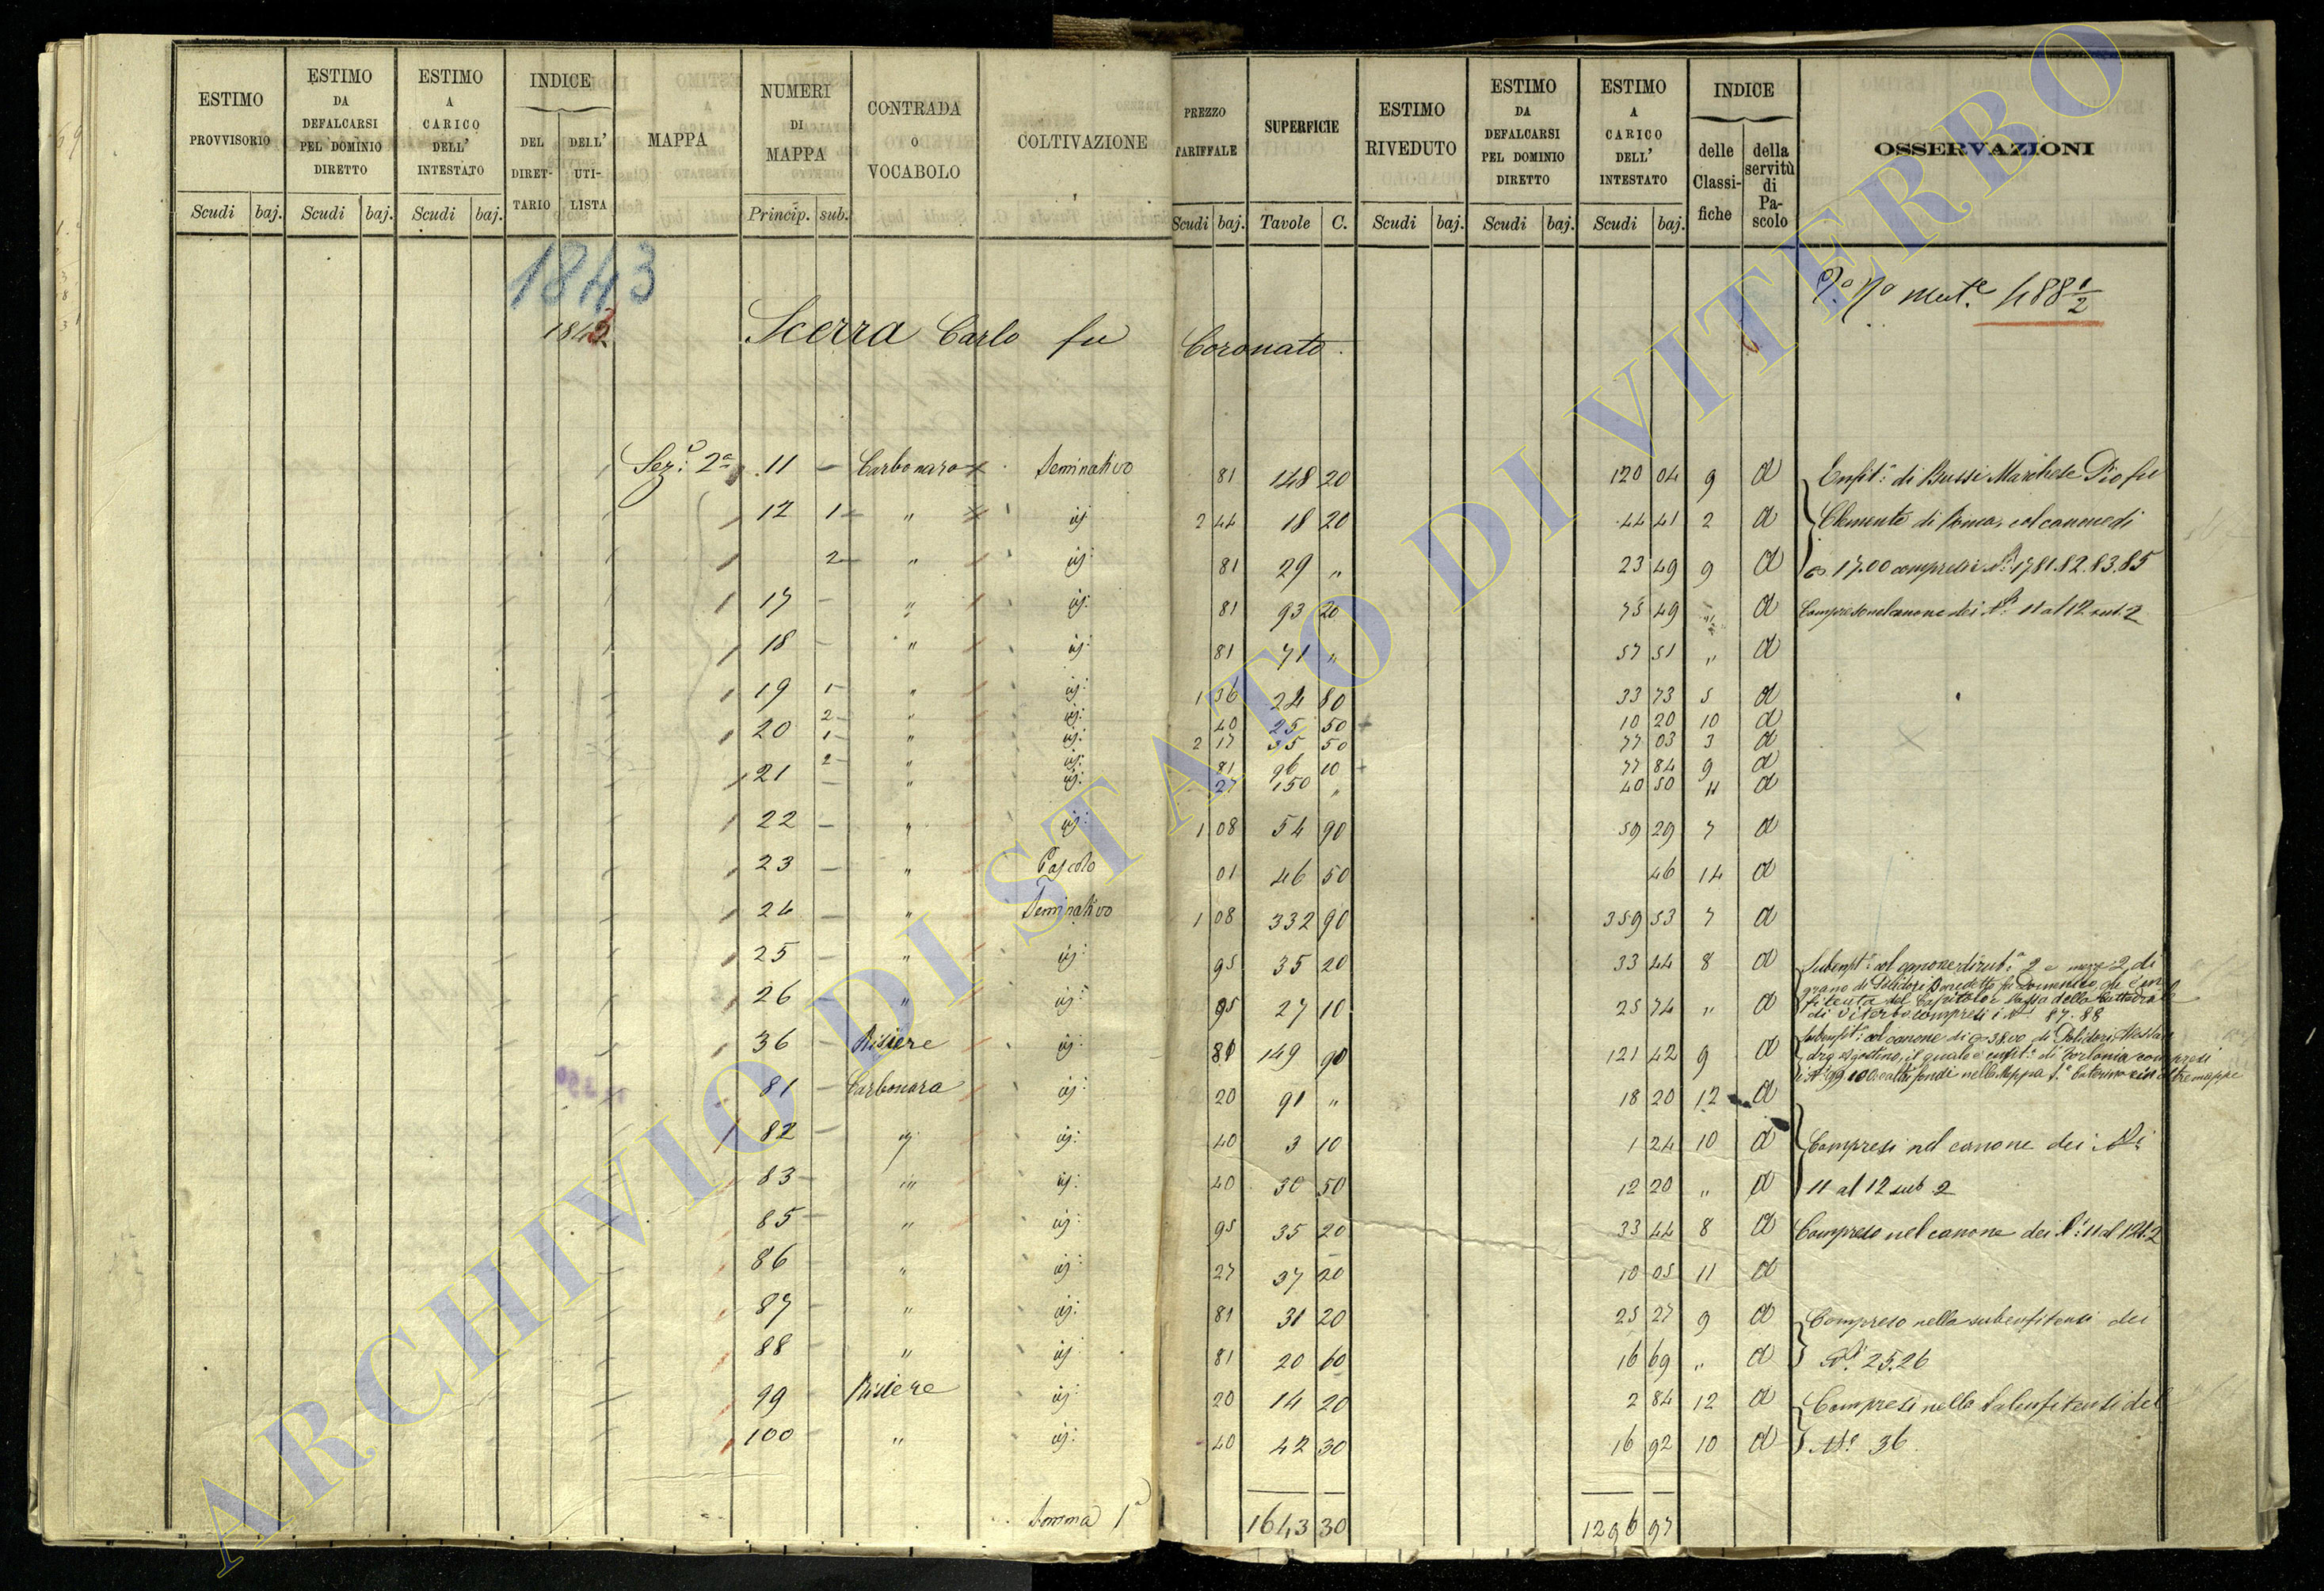 ESTIMO PROVVISORIO | ESTIMO DA DEFALCARSI PEL DOMINIO DIRETTO | ESTIMO A CARICO DELL' INTESTATO | INDICE DEL DIRET-TARIO | DELL' UTI-LISTA | MAPPA | NUMERI DI MAPPA | CONTRADA O VOCABOLO | COLTIVAZIONE | PREZZO TARIFFALE | SUPERFICIE | ESTIMO RIVEDUTO | ESTIMO DA DEFALCARSI PEL DOMINIO DIRETTO | ESTIMO A CARICO DELL' INTESTATO | INDICE delle Classi-fiche | della servitù di Pa-scolo | OSSERVAZIONI
Scudi | baj. | Scudi | baj. | Scudi | baj. | Princip. | sub. | Scudi | baj. | Tavole | C. | Scudi | baj. | Scudi | baj. | Scudi | baj.
1843
488 1/2
Scerra Carlo fu Coronato.
Sez: 2a 11 — Carbonara Seminativo 81 148 20 120 04 9 a Enfit: di Bussi Marchese Pio fu
12 1 " id: 2 44 18 20 44 41 2 a Clemente di col canone di
2 " id: 81 29 " 23 49 9 a 17.00 compresi 17 81.82.83.85
17 — " id: 81 93 20 75 49 " a Compreso nel canone dei Ni 11 al 12 sub. 2
18 — " id: 81 71 " 57 51 " a
19 1 " id: 1 36 24 80 33 73 5 a
2 " id: 40 25 50 10 20 10 a
20 1 " id: 2 17 35 50 77 03 3 a
2 " id: 81 96 10 77 84 9 a
21 — " id: 27 150 " 40 50 11 a
22 — " id: 1 08 54 90 59 29 7 a
23 — " Pascolo 01 46 50 46 14 a
24 — " Seminativo 1 08 332 90 359 53 7 a
25 — " id: 95 35 20 33 44 8 a col canone di 2 e mezzo di
grano di Polidori Benedetto fu Domenico
26 — " id: 95 27 10 25 74 " a del Capitolo e Massa della Cattedrale
di Viterbo compresi i Ni 87.88
36 — Risiere id: 81 149 90 121 42 9 a col canone di 38.00 di Polidori
il quale è enfit: di Torlonia compresi
i Ni 99 100
81 — Carbonara id: 20 91 " 18 20 12 a
82 — id: id: 40 3 10 1 24 10 a Compresi nel canone dei Ni
83 — " id: 40 30 50 12 20 " a 11 al 12 sub 2
85 — " id: 95 35 20 33 44 8 a Compreso nel canone dei Ni 11 al 12 s. 2
86 " id: 27 37 20 10 05 11 a
87 — " id: 81 31 20 25 27 9 a Compreso nella subenfiteusi dei
88 — " id: 81 20 60 16 69 " a Ni 25.26
99 — Risiere id: 20 14 20 2 84 12 a Compresi nella subenfiteusi del
100 — " id: 40 42 30 16 92 10 a No 36
Somma 1a 1643 30 1296 97
ARCHIVIO DI STATO DI VITERBO